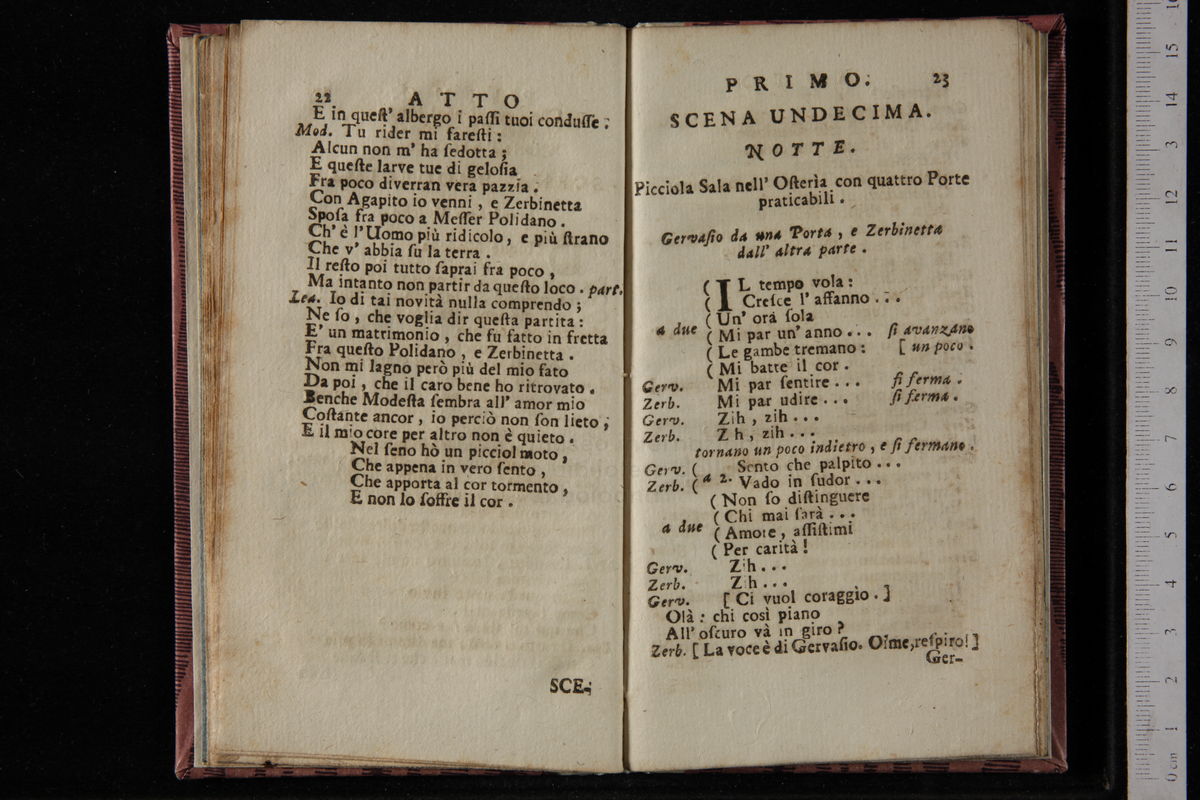 22 ATTO
E in queſt' albergo i paſſi tuoi conduſſe.
Mod. Tu rider mi fareſti:
Alcun non m' ha ſedotta;
E queſte larve tue di geloſia
Fra poco diverran vera pazzia.
Con Agapito io venni, e Zerbinetta
Spoſa fra poco a Meſſer Polidano.
Ch' è l'Uomo più ridicolo, e più ſtrano
Che v' abbia ſu la terra.
Il reſto poi tutto ſaprai fra poco,
Ma intanto non partir da queſto loco. part.
Lea. Io di tai novità nulla comprendo;
Ne ſo, che voglia dir queſta partita:
E' un matrimonio, che fu fatto in fretta
Fra queſto Polidano, e Zerbinetta.
Non mi lagno però più del mio fato
Da poi, che il caro bene ho ritrovato.
Benche Modeſta ſembra all' amor mio
Coſtante ancor, io perciò non ſon lieto;
E il mio core per altro non è quieto.
Nel ſeno hò un picciol moto,
Che appena in vero ſento,
Che apporta al cor tormento,
E non lo ſoffre il cor.
SCE-
PRIMO. 23
SCENA UNDECIMA.
NOTTE.
Picciola Sala nell' Oſterìa con quattro Porte
praticabili.
Gervaſio da una Porta, e Zerbinetta
dall' altra parte.
( IL tempo vola:
( Creſce l' affanno...
( Un' ora ſola
a due ( Mi par un' anno... ſi avanzano
( Le gambe tremano: [ un poco.
( Mi batte il cor.
Gerv. Mi par ſentire... ſi ferma.
Zerb. Mi par udire... ſi ferma.
Gerv. Zih, zih...
Zerb. Z h, zih...
tornano un poco indietro, e ſi fermano.
Gerv. ( Sento che palpito...
Zerb. ( a 2. Vado in ſudor...
( Non ſo diſtinguere
( Chi mai ſarà...
a due ( Amore, aſſiſtimi
( Per carità!
Gerv. Zih...
Zerb. Zih...
Gerv. [ Ci vuol coraggio. ]
Olà: chi così piano
All' oſcuro và in giro?
Zerb. [ La voce è di Gervaſio. Oime, reſpiro! ]
Ger-